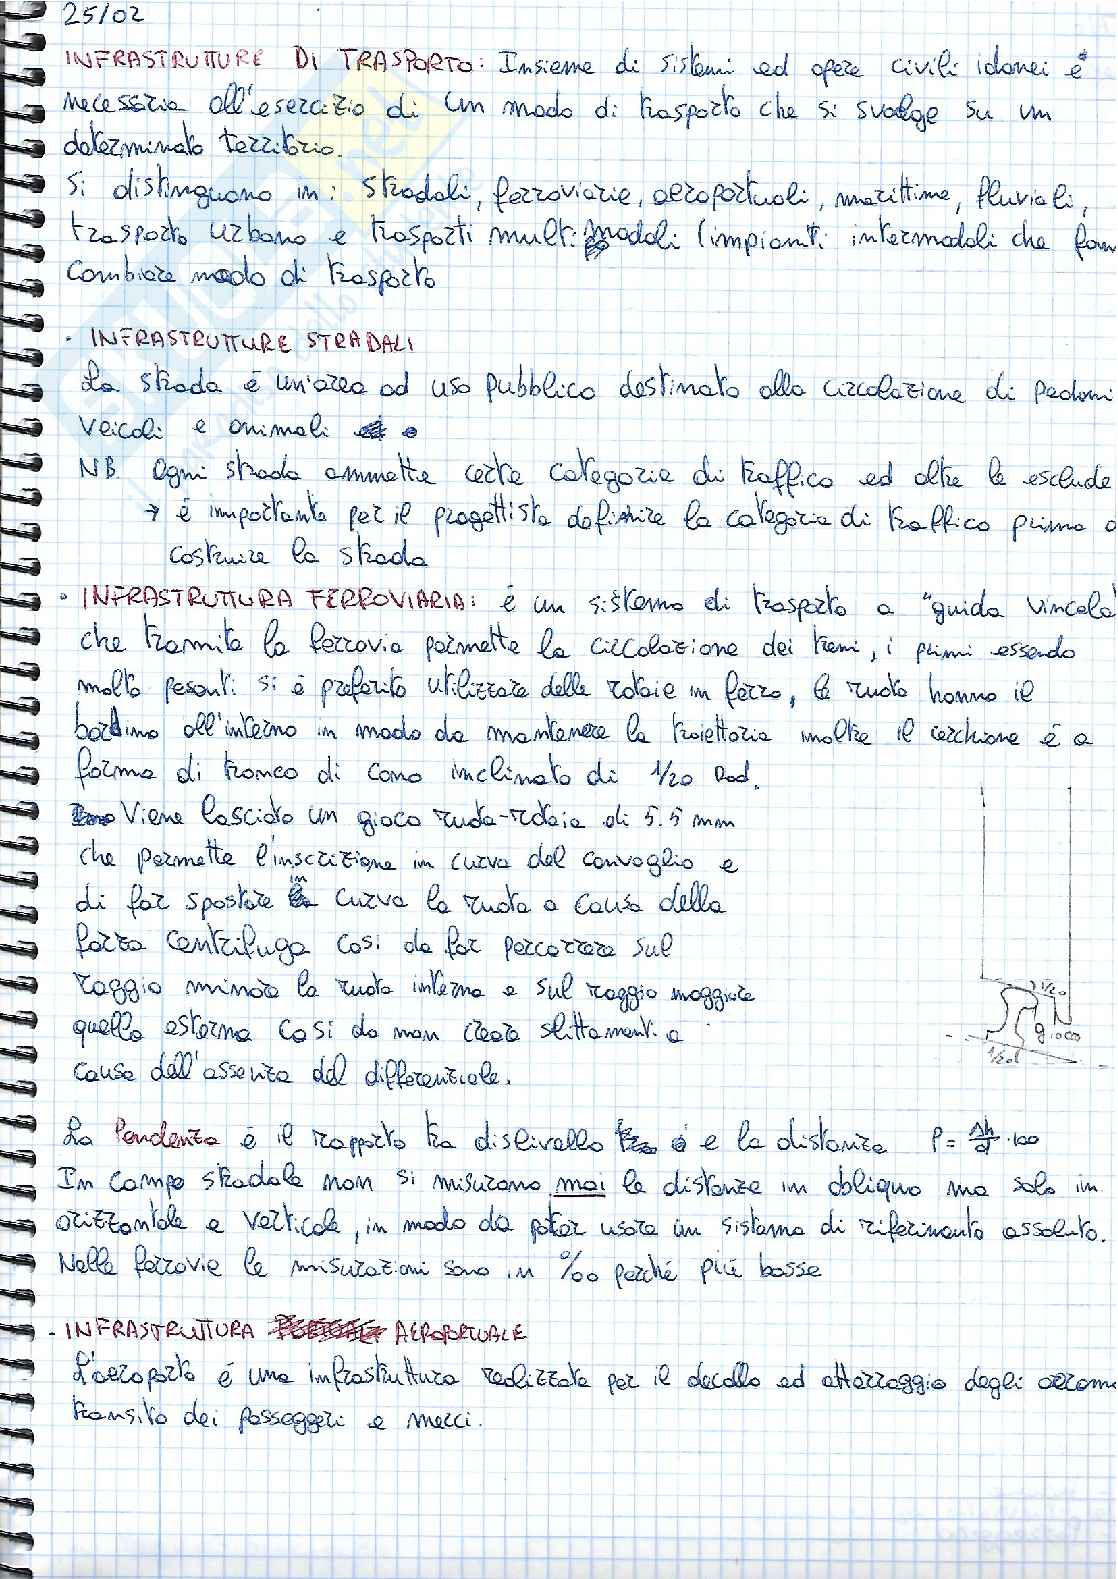 25/02
INFRASTRUTTURE DI TRASPORTO: Insieme di sistemi ed opere civili idonei e
necessarie all'esercizio di un modo di trasporto che si svolge su un
determinato territorio.
Si distinguono in: stradali, ferroviarie, aeroportuali, marittime, fluviali,
trasporto urbano e trasporti multimodali (impianti intermodali che fan
cambiare modo di trasporto
· INFRASTRUTTURE STRADALI
La strada é un'area ad uso pubblico destinata alla circolazione di pedoni
veicoli e animali
NB. Ogni strada ammette certe categorie di traffico ed altre le esclude
→ é importante per il progettista definire la categoria di traffico prima
costruire la strada
· INFRASTRUTTURA FERROVIARIA: é un sistema di trasporto a "guida vincola
che tramite la ferrovia permette la circolazione dei treni, i primi essendo
molto pesanti si é preferito utilizzare delle rotaie in ferro, le ruote hanno il
bordino all'interno in modo da mantenere la traiettoria inoltre il cerchione é a
forma di tronco di cono inclinato di 1/20 Rad.
Viene lasciato un gioco ruota-rotaia di 5.5 mm
che permette l'inscrizione in curva del convoglio e
di far spostare in curva la ruota a causa della
forza centrifuga cosi da far percorrere sul
raggio minore la ruota interna e sul raggio maggiore
quella esterna cosi da non creare slittamenti a
causa dell'assenza del differenziale.
1/20
gioco
1/20
La Pendenza é il rapporto tra dislivello e la distanza P = Δh/d · 100
In campo stradale non si misurano mai le distanze in obliquo ma solo in
orizzontale e verticale, in modo da poter usare un sistema di riferimento assoluto.
Nelle ferrovie le misurazioni sono in ‰ perché piú basse
- INFRASTRUTTURA AEROPORTUALE
L'aeroporto é una infrastruttura realizzata per il decollo ed atterraggio degli aerom
transito dei passeggeri e merci.